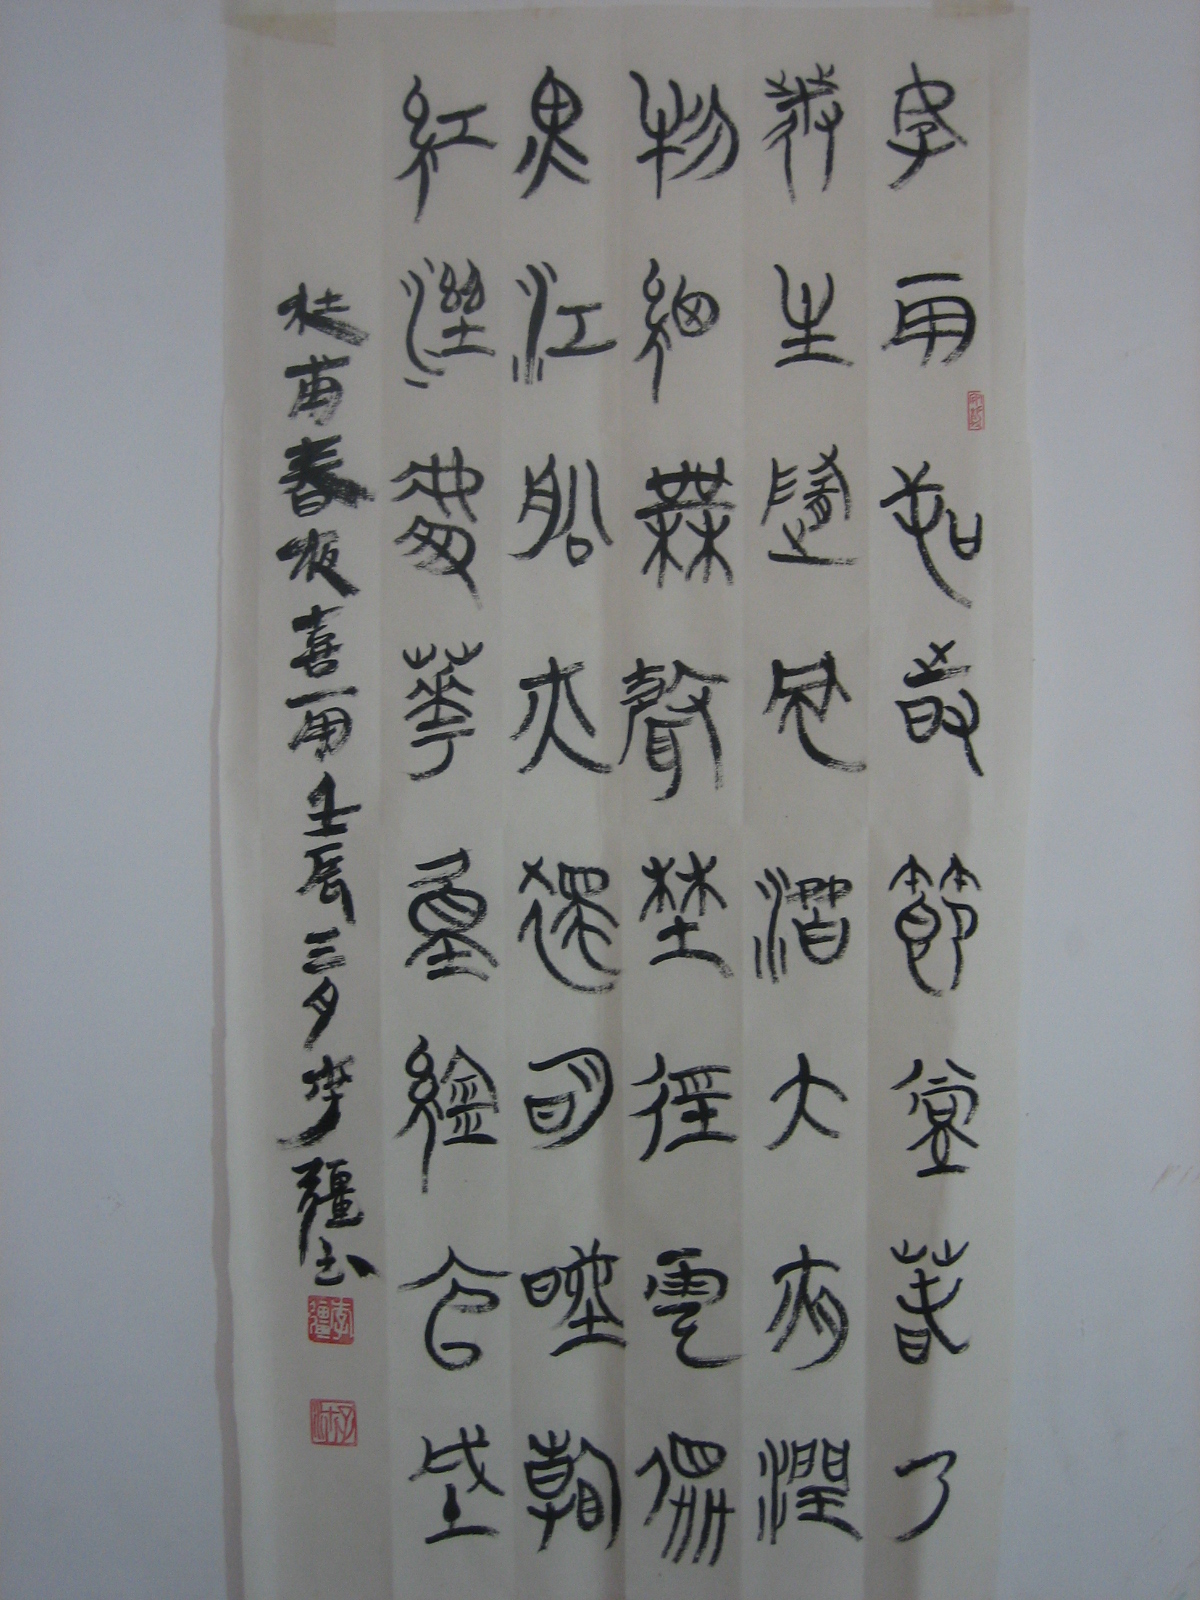 好雨知時節當春乃
發生隨風潛入夜潤
物細無聲埜徑雲俱
黑江船火獨明曉看
紅溼處華重錦官城
杜甫春夜喜雨壬辰三月李疆书
李疆